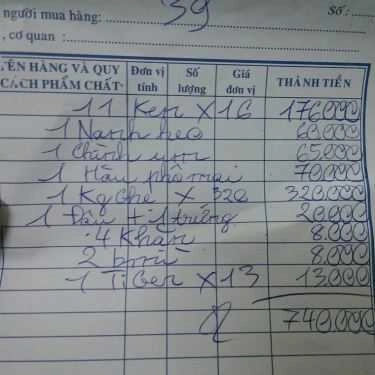 39
người mua hàng: Số :
, cơ quan :
TÊN HÀNG VÀ QUY CÁCH PHẨM CHẤT Đơn vị tính Số lượng Giá đơn vị THÀNH TIỀN
11 Ken x 16 176.000
1 Nanh heo 60.000
1 65.000
1 Hàu phô mai 70.000
1 Kg Ghẹ x 320 320.000
1 Đậu + 1 trứng 20.000
4 Khăn 8.000
2 8.000
1 Tiger x 13 13.000
740.000